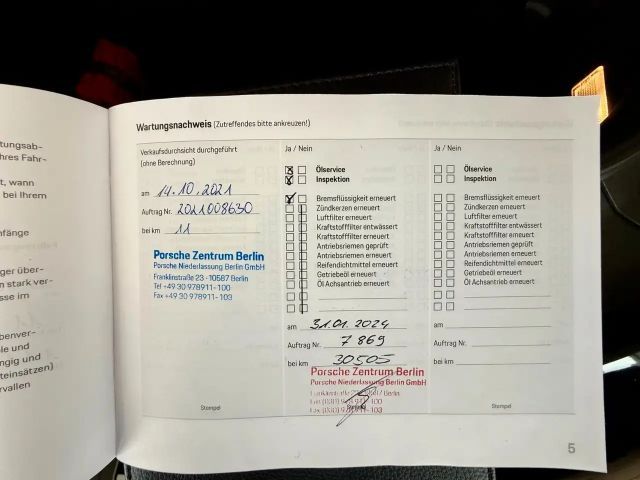 tungsab-
hres Fahr-
t, wann
bei Ihrem
nfänge
ger über-
n stark ver-
sse im
benver-
le und
ngig und
teinsätzen)
rvallen
Wartungsnachweis (Zutreffendes bitte ankreuzen!)
Verkaufsdurchsicht durchgeführt
(ohne Berechnung)
am 14.10.2021
Auftrag Nr. 2021008630
bei km 11
Porsche Zentrum Berlin
Porsche Niederlassung Berlin GmbH
Franklinstraße 23 - 10587 Berlin
Tel +49 30 978911-100
Fax +49 30 978911-103
Stempel
Ja / Nein
Ölservice
Inspektion
Bremsflüssigkeit erneuert
Zündkerzen erneuert
Luftfilter erneuert
Kraftstofffilter entwässert
Kraftstofffilter erneuert
Antriebsriemen geprüft
Antriebsriemen erneuert
Reifendichtmittel erneuert
Getriebeöl erneuert
Öl Achsantrieb erneuert
am 31.01.2024
Auftrag Nr. 7869
bei km 30505
Porsche Zentrum Berlin
Porsche Niederlassung Berlin GmbH
Stempel
Ja / Nein
Ölservice
Inspektion
Bremsflüssigkeit erneuert
Zündkerzen erneuert
Luftfilter erneuert
Kraftstofffilter entwässert
Kraftstofffilter erneuert
Antriebsriemen geprüft
Antriebsriemen erneuert
Reifendichtmittel erneuert
Getriebeöl erneuert
Öl Achsantrieb erneuert
am
Auftrag Nr.
bei km
Stempel
5